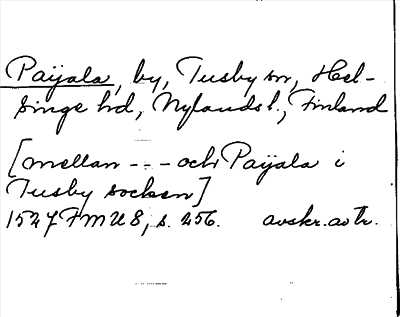 Paijala, by, Tusby sn, Hel-
singe hd, Nylands l., Finland
[mellan - - - och Paijala i
Tusby socken]
1527 FMU 8, s. 256. avskr. av tr.